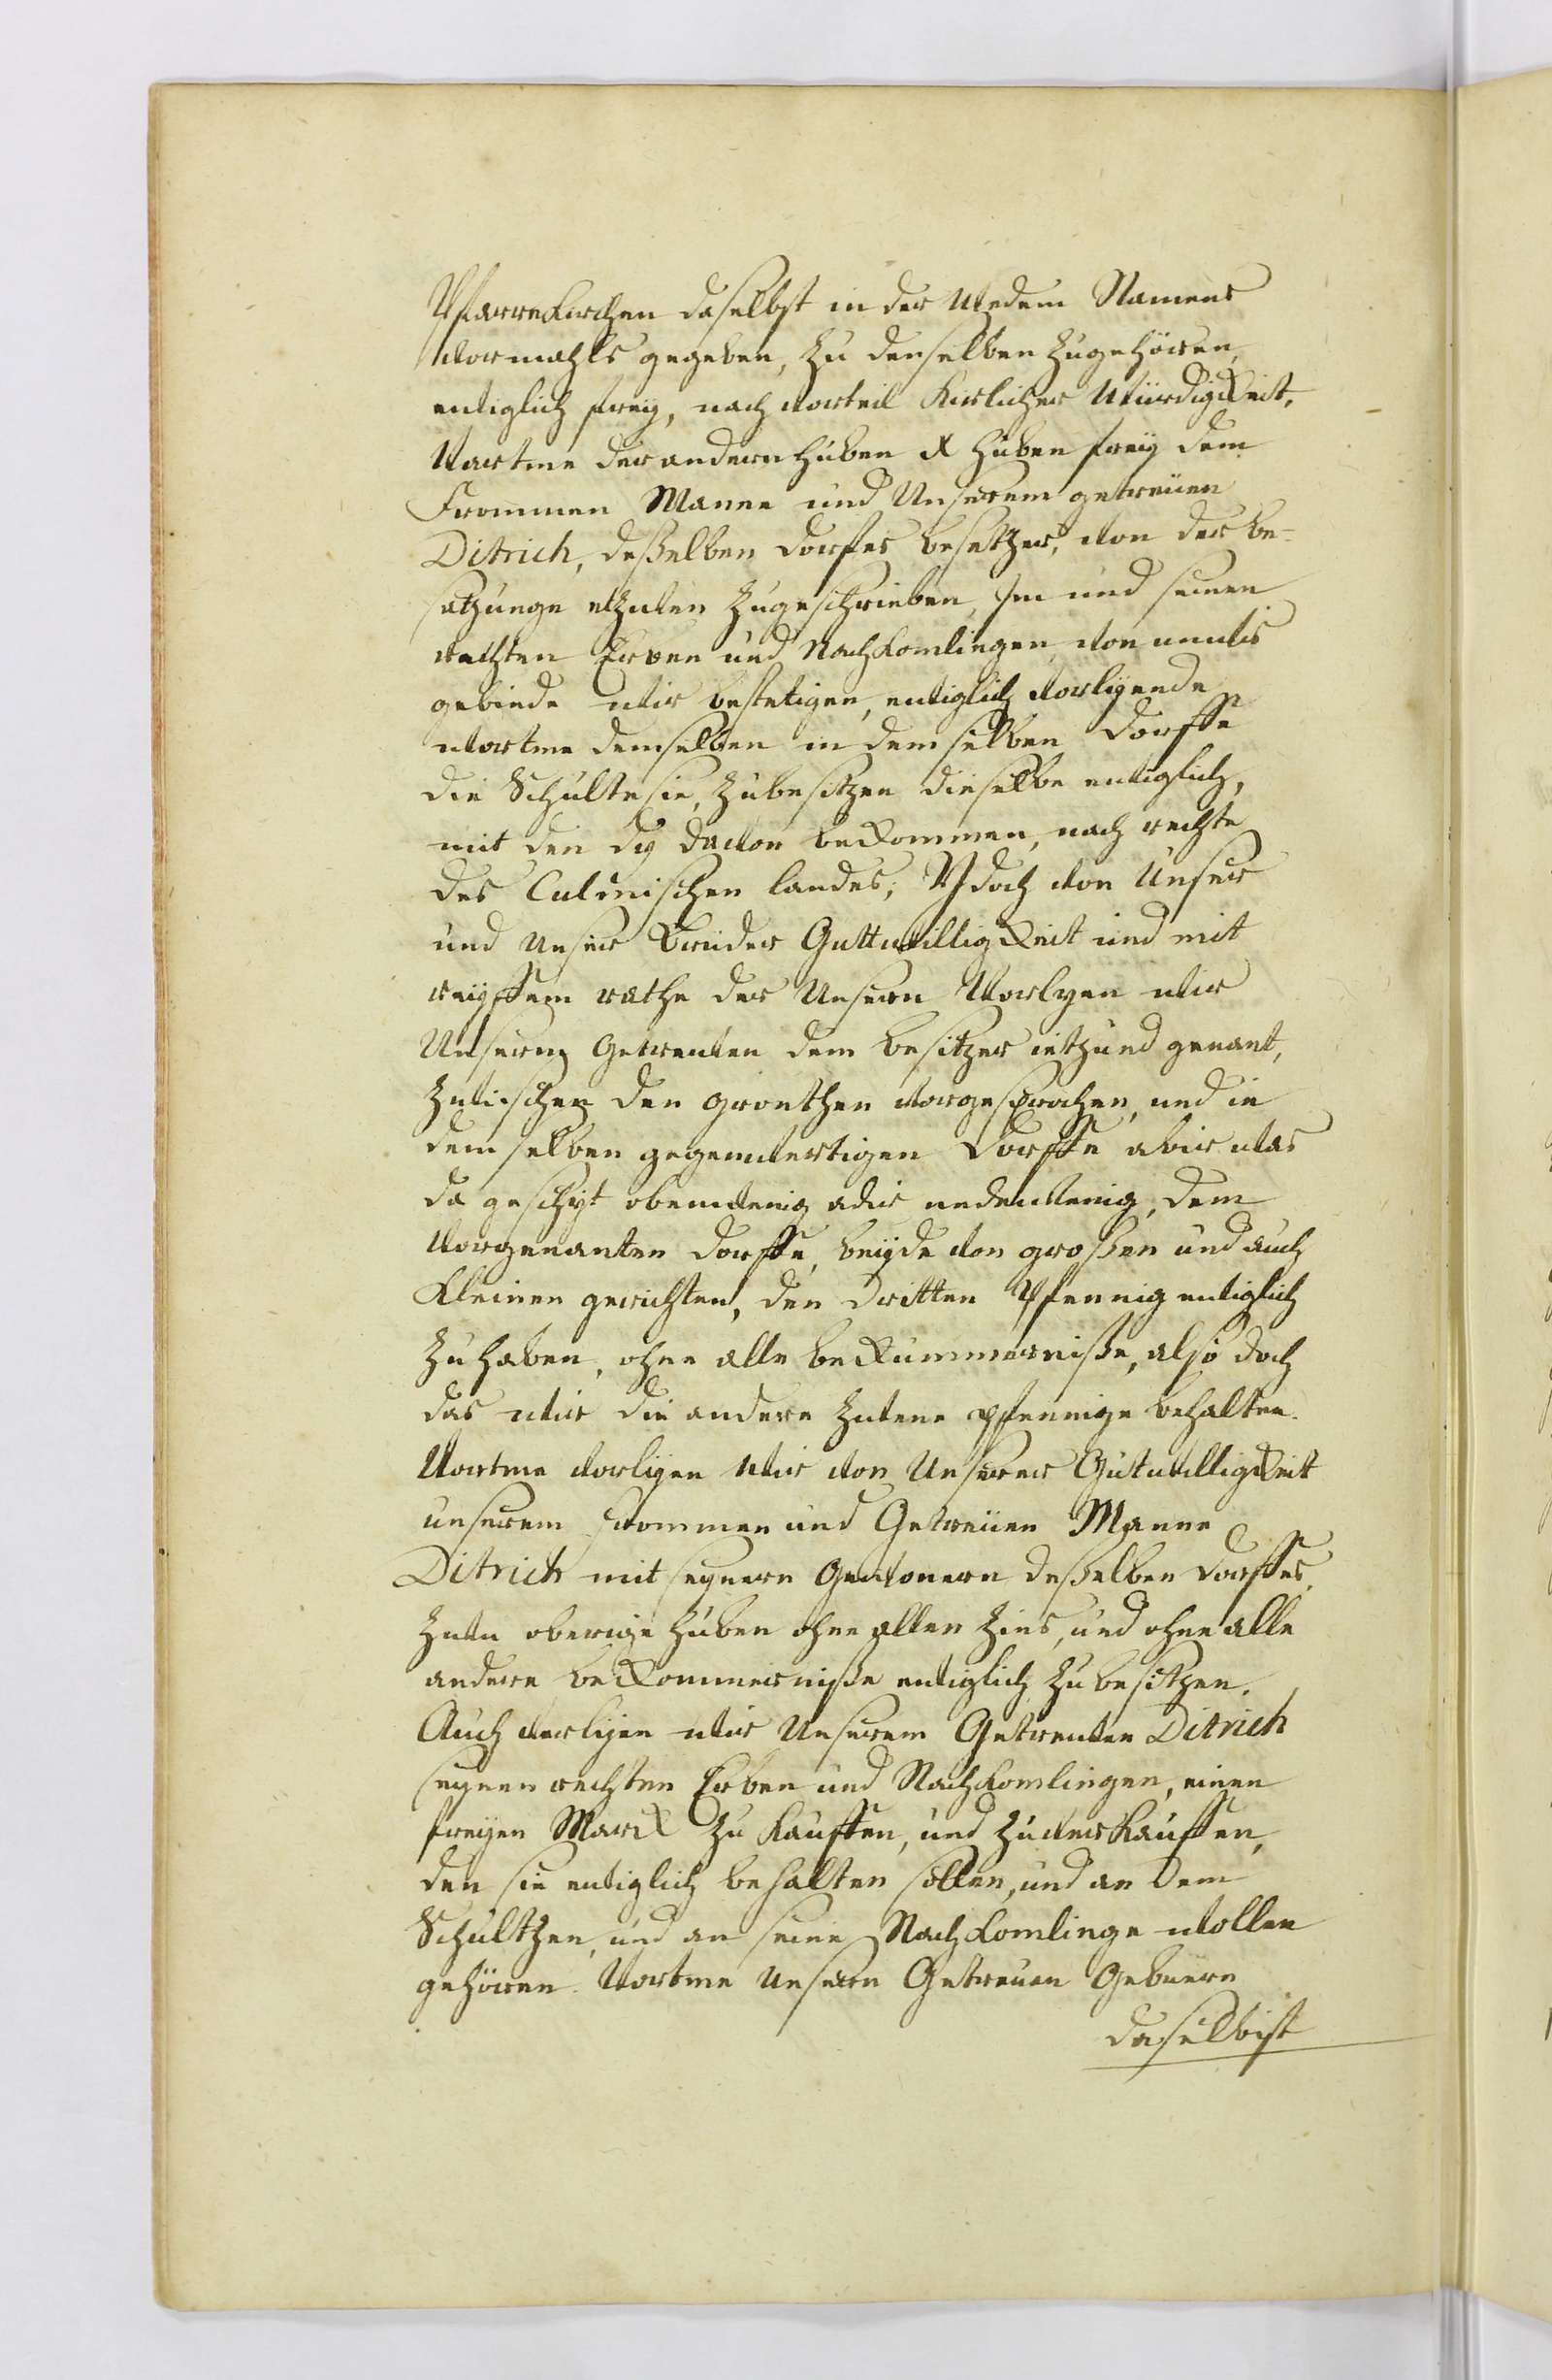 Pfarrekirchen daselbst in der Wedem Namens
vormahls gegeben, zu denselben zugehören,
ewiglich frey, nach vorteil Kirlicher Würdigkeit,
Vortme der andern huben X huben frey dem
Frommen Manne und Unserem getreüen
Ditrich, deßelben dorfes besetzer, von der be-
satzunge etzwen zugeschrieben, Im und seinen
rechten Erben und Nachkomlingen, von
gebinde wir bestetigen, ewiglich vorlyende
vortme demselben in dem selben Dorffe
die Schultesie, zubesitzen dieselbe ewiglich,
mit den dy davon bekommen, nach rechte
des Culmischen landes; Ydoch von Unser
und Unser Brüder Guttwilligkeit und mit
reyffem rathe der Unsern Vorlyen wir
Unserm Getreuwen dem besitzer itzund genant,
zwischen den grenthen vorgesprochen, und in
dem selben gegenwertigen Dorffe abir was
da geschyt obenwenig adir nedenwenig, dem
vorgenanten dorffe, beyde von großen und auch
Kleinen gerichten, den dritten Pfennig ewiglich
zu haben, ohne alle bekummerniße, also doch
das wir die andern zwene pfennige behalten.
Vortme vorlyen wir von Unserer Gutwilligkeit
unserem frommen und Getreüen Manne
Ditrich mit seynern Gewonern deßelben dorffes,
zwu oberige huben ohne allen zins, und ohne alle
andere bekommerniße ewiglich zu besitzen.
Auch verlyen wir Unserem Getreuwen Ditrich
seynen rechten Erben und Nachkomlingen, einen
freyen Markt zu kauffen, und zuverkauffen,
den sie ewiglich behalten sollen, und an dem
Schultzen, und an seine Nachkomlinge wollen
gehören. Vortme Unsern Getreuen Gebuern
daselbist